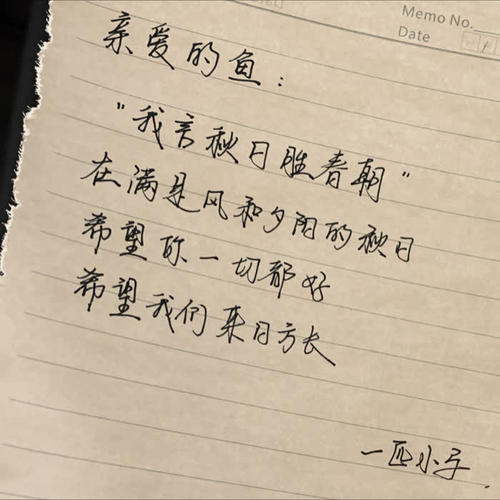 Memo No.
Date
亲爱的鱼：
"我言秋日胜春朝"
在满是风和夕阳的秋日
希望你一切都好
希望我们来日方长
一匹小